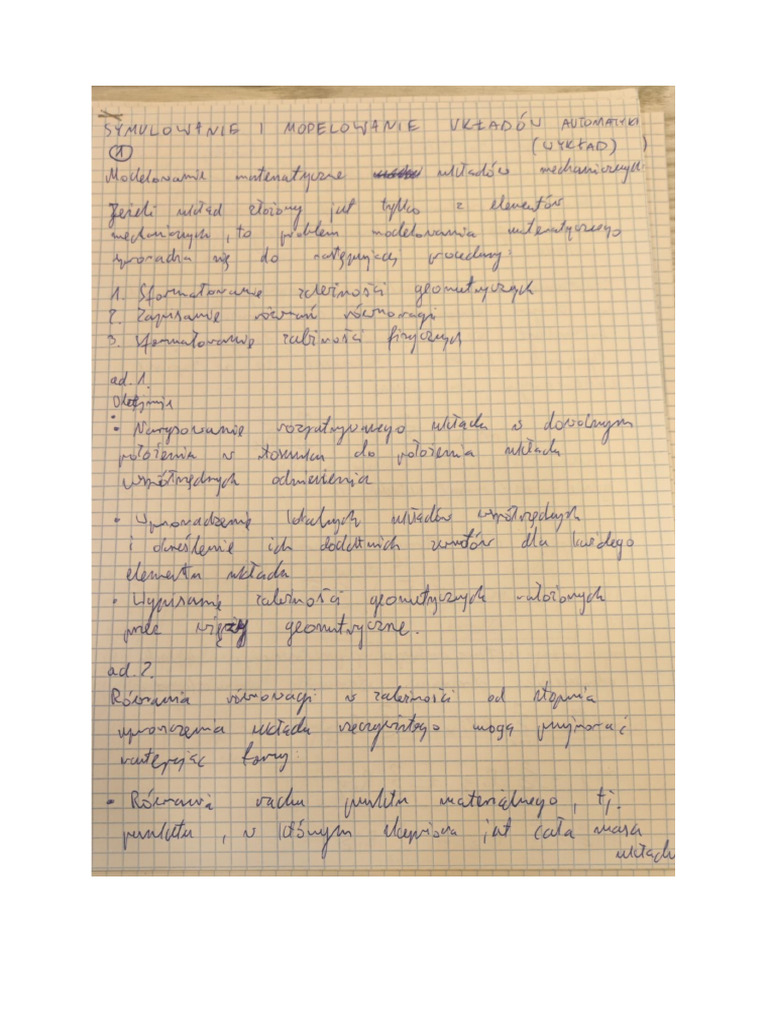 SYMULOWANIE I MODELOWANIE UKŁADÓW AUTOMATYKI
(WYKŁAD)
1
Modelowanie matematyczne układów mechanicznych:
Jeżeli układ złożony jest tylko z elementów
mechanicznych, to problem modelowania matematycznego
sprowadza się do następującej procedury:
1. Sformatowanie zależności geometrycznych
2. Zapisanie równań równowagi
3. Sformatowanie zależności fizycznych
ad. 1.
• Narysowanie rozpatrywanego układu w dowolnym
położenia w stosunku do położenia układu
współrzędnych odniesienia
• Wprowadzenie lokalnych układów współrzędnych
i określenie ich dodatnich zwrotów dla każdego
elementu układu
• Wypisanie zależności geometrycznych nałożonych
przez więzy geometryczne.
ad. 2.
Równania równowagi w zależności od stopnia
uproszczenia układu rzeczywistego mogą przyjmować
następując formy:
• Równania ruchu punktu materialnego, tj.
punktu, w którym skupiona jest cała masa
układu